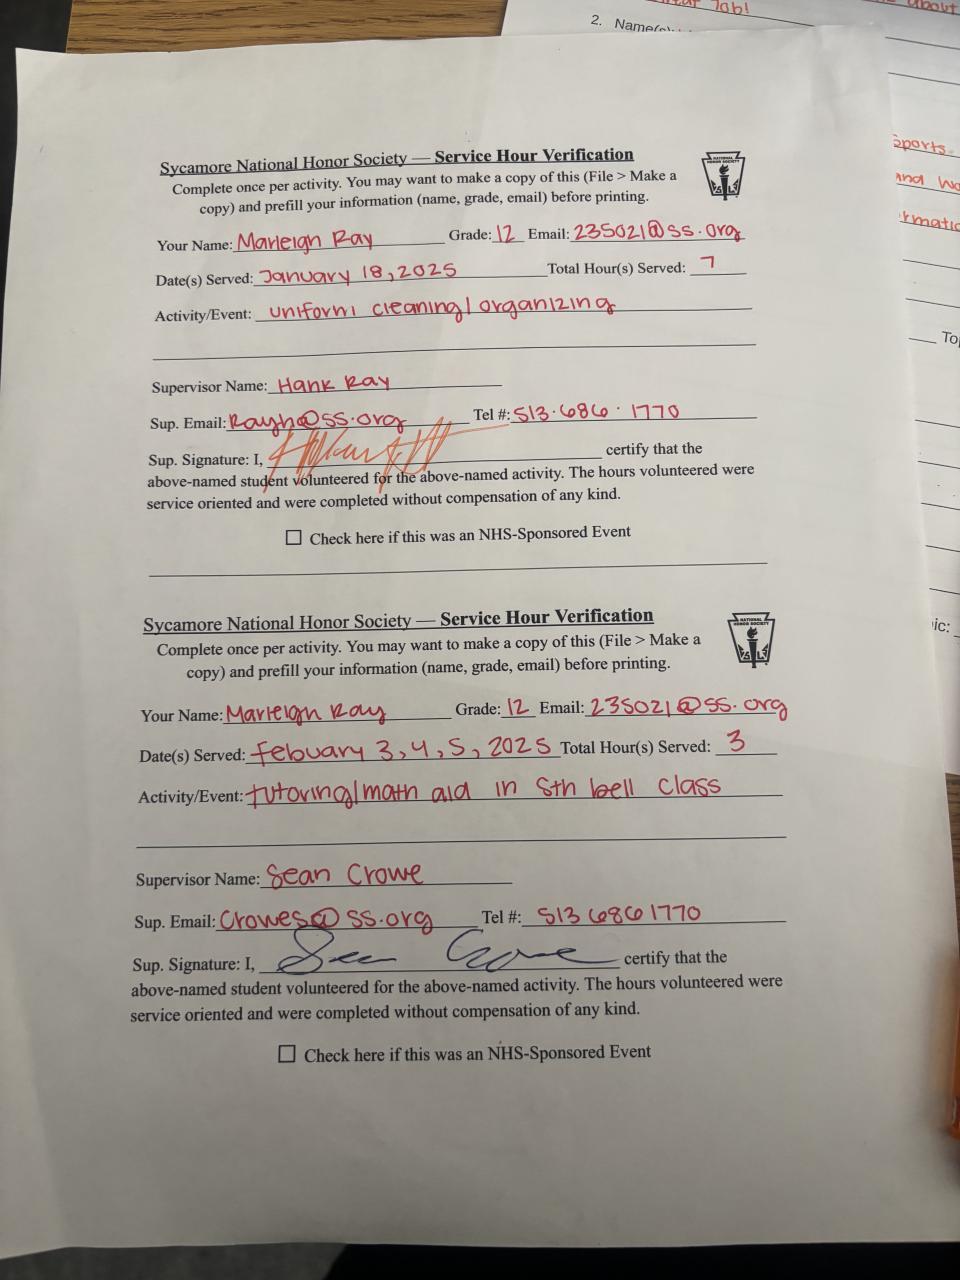 tur Tab!
about
2. Name(s):
Sports
and wa
rmatio
To
ic:
Sycamore National Honor Society — Service Hour Verification
NATIONAL HONOR SOCIETY
Complete once per activity. You may want to make a copy of this (File > Make a
copy) and prefill your information (name, grade, email) before printing.
Your Name: Marleigh Ray Grade: 12 Email: 235021@ss.org
Date(s) Served: January 18, 2025 Total Hour(s) Served: 7
Activity/Event: uniform cleaning/organizing
Supervisor Name: Hank Ray
Sup. Email: Rayh@ss.org Tel #: 513.686.1770
Sup. Signature: I, certify that the
above-named student volunteered for the above-named activity. The hours volunteered were
service oriented and were completed without compensation of any kind.
☐ Check here if this was an NHS-Sponsored Event
Sycamore National Honor Society — Service Hour Verification
NATIONAL HONOR SOCIETY
Complete once per activity. You may want to make a copy of this (File > Make a
copy) and prefill your information (name, grade, email) before printing.
Your Name: Marleigh Ray Grade: 12 Email: 235021@ss.org
Date(s) Served: Febuary 3, 4, 5, 2025 Total Hour(s) Served: 3
Activity/Event: tutoring/math aid in 5th bell class
Supervisor Name: Sean Crowe
Sup. Email: Crowes@ss.org Tel #: 513 686 1770
Sup. Signature: I, Sean Crowe certify that the
above-named student volunteered for the above-named activity. The hours volunteered were
service oriented and were completed without compensation of any kind.
☐ Check here if this was an NHS-Sponsored Event